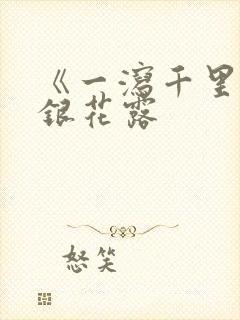 《一瀉千里
銀花露
怒笑